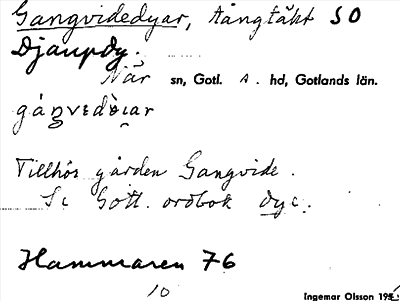 Gangvidedyar, tångtäkt SO
Djaupdy.
När sn, Gotl. S. hd, Gotlands län.
Tillhör gården Gangvide.
Se Gotl. ordbok dye.
Hammaren 76
10
Ingemar Olsson